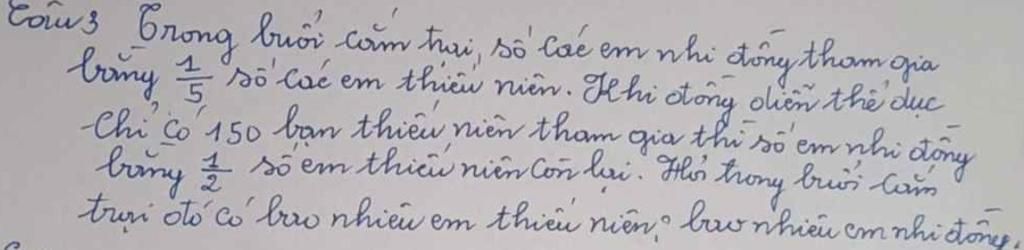 Câu 3 Trong buổi cắm trại, số các em nhi đồng tham gia
bằng 1/5 số các em thiếu niên. Khi đồng diễn thể dục
chỉ có 150 bạn thiếu niên tham gia thì số em nhi đồng
bằng 1/2 số em thiếu niên còn lại. Hỏi trong buổi cắm
trại đó có bao nhiêu em thiếu niên? bao nhiêu em nhi đồng.